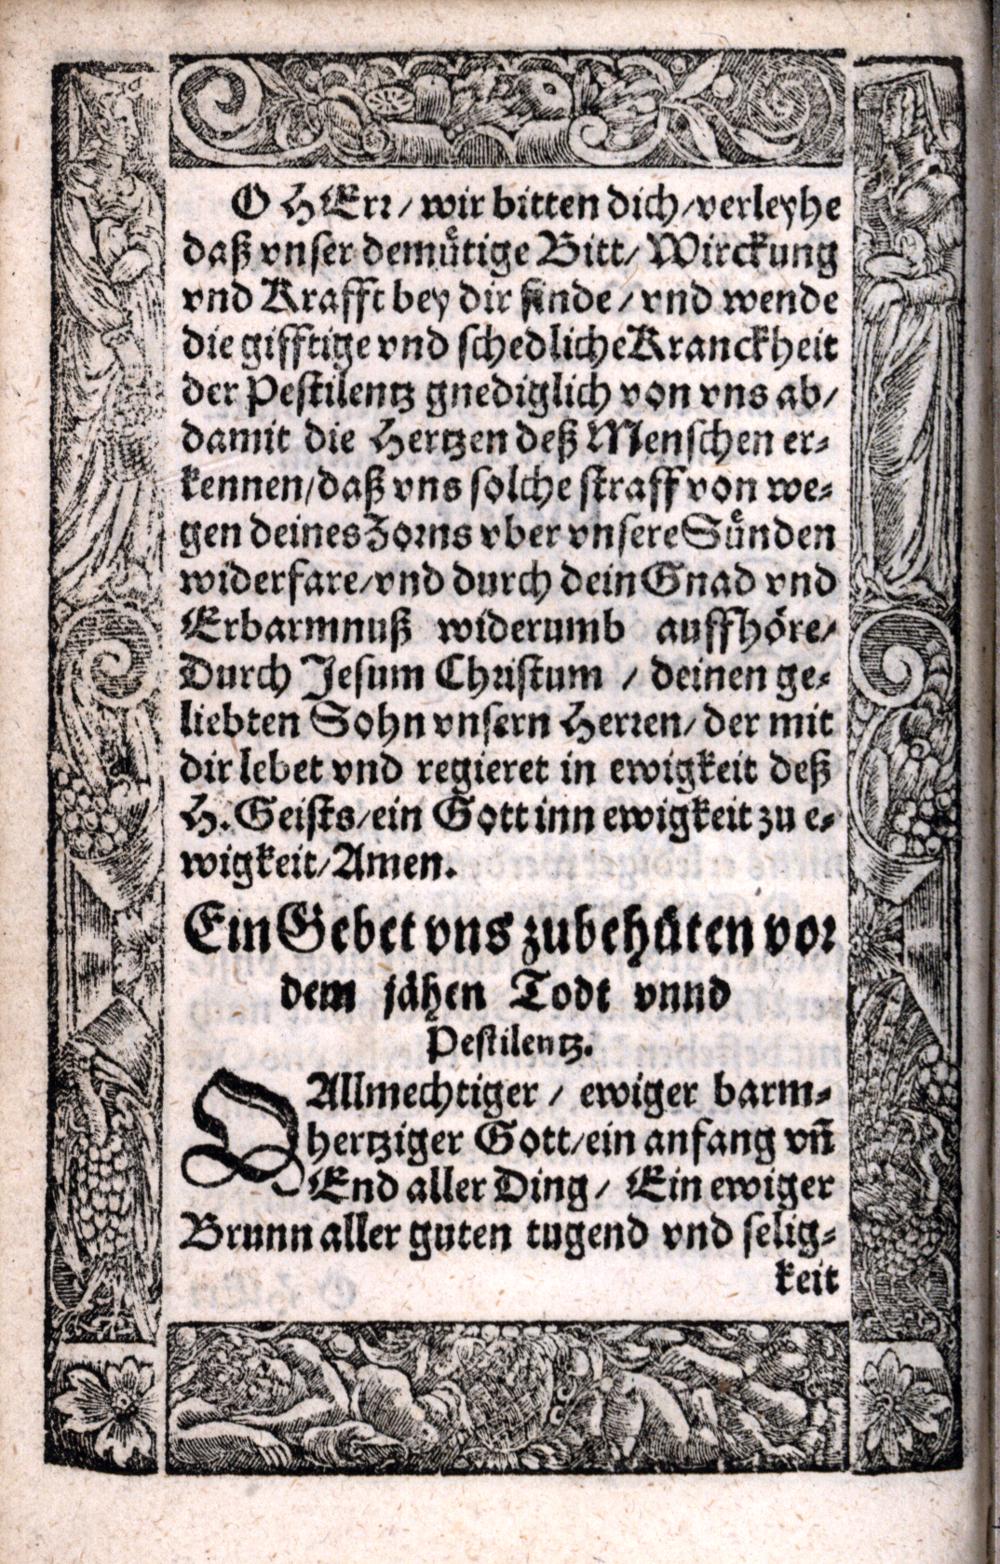 O HErr/wir bitten dich/verleyhe
daß vnser demuͤtige Bitt/Wirckung
vnd Krafft bey dir finde/vnd wende
die gifftige vnd schedliche Kranckheit
der Pestilentz gnediglich von vns ab/
damit die Hertzen deß Menschen er-
kennen/daß vns solche straff von we-
gen deines Zorns vber vnsere Suͤnden
widerfare/vnd durch dein Gnad vnd
Erbarmnuß widerumb auffhöre/
Durch Jesum Christum / deinen ge-
liebten Sohn vnsern Herren/der mit
dir lebet vnd regieret in ewigkeit deß
H. Geists/ein Gott inn ewigkeit zu e-
wigkeit/Amen.
Ein Gebet vns zubehüten vor
dem jähen Todt vnnd
Pestilentz.
O Allmechtiger / ewiger barm-
hertziger Gott/ein anfang vñ
End aller Ding / Ein ewiger
Brunn aller guten tugend vnd selig-
keit